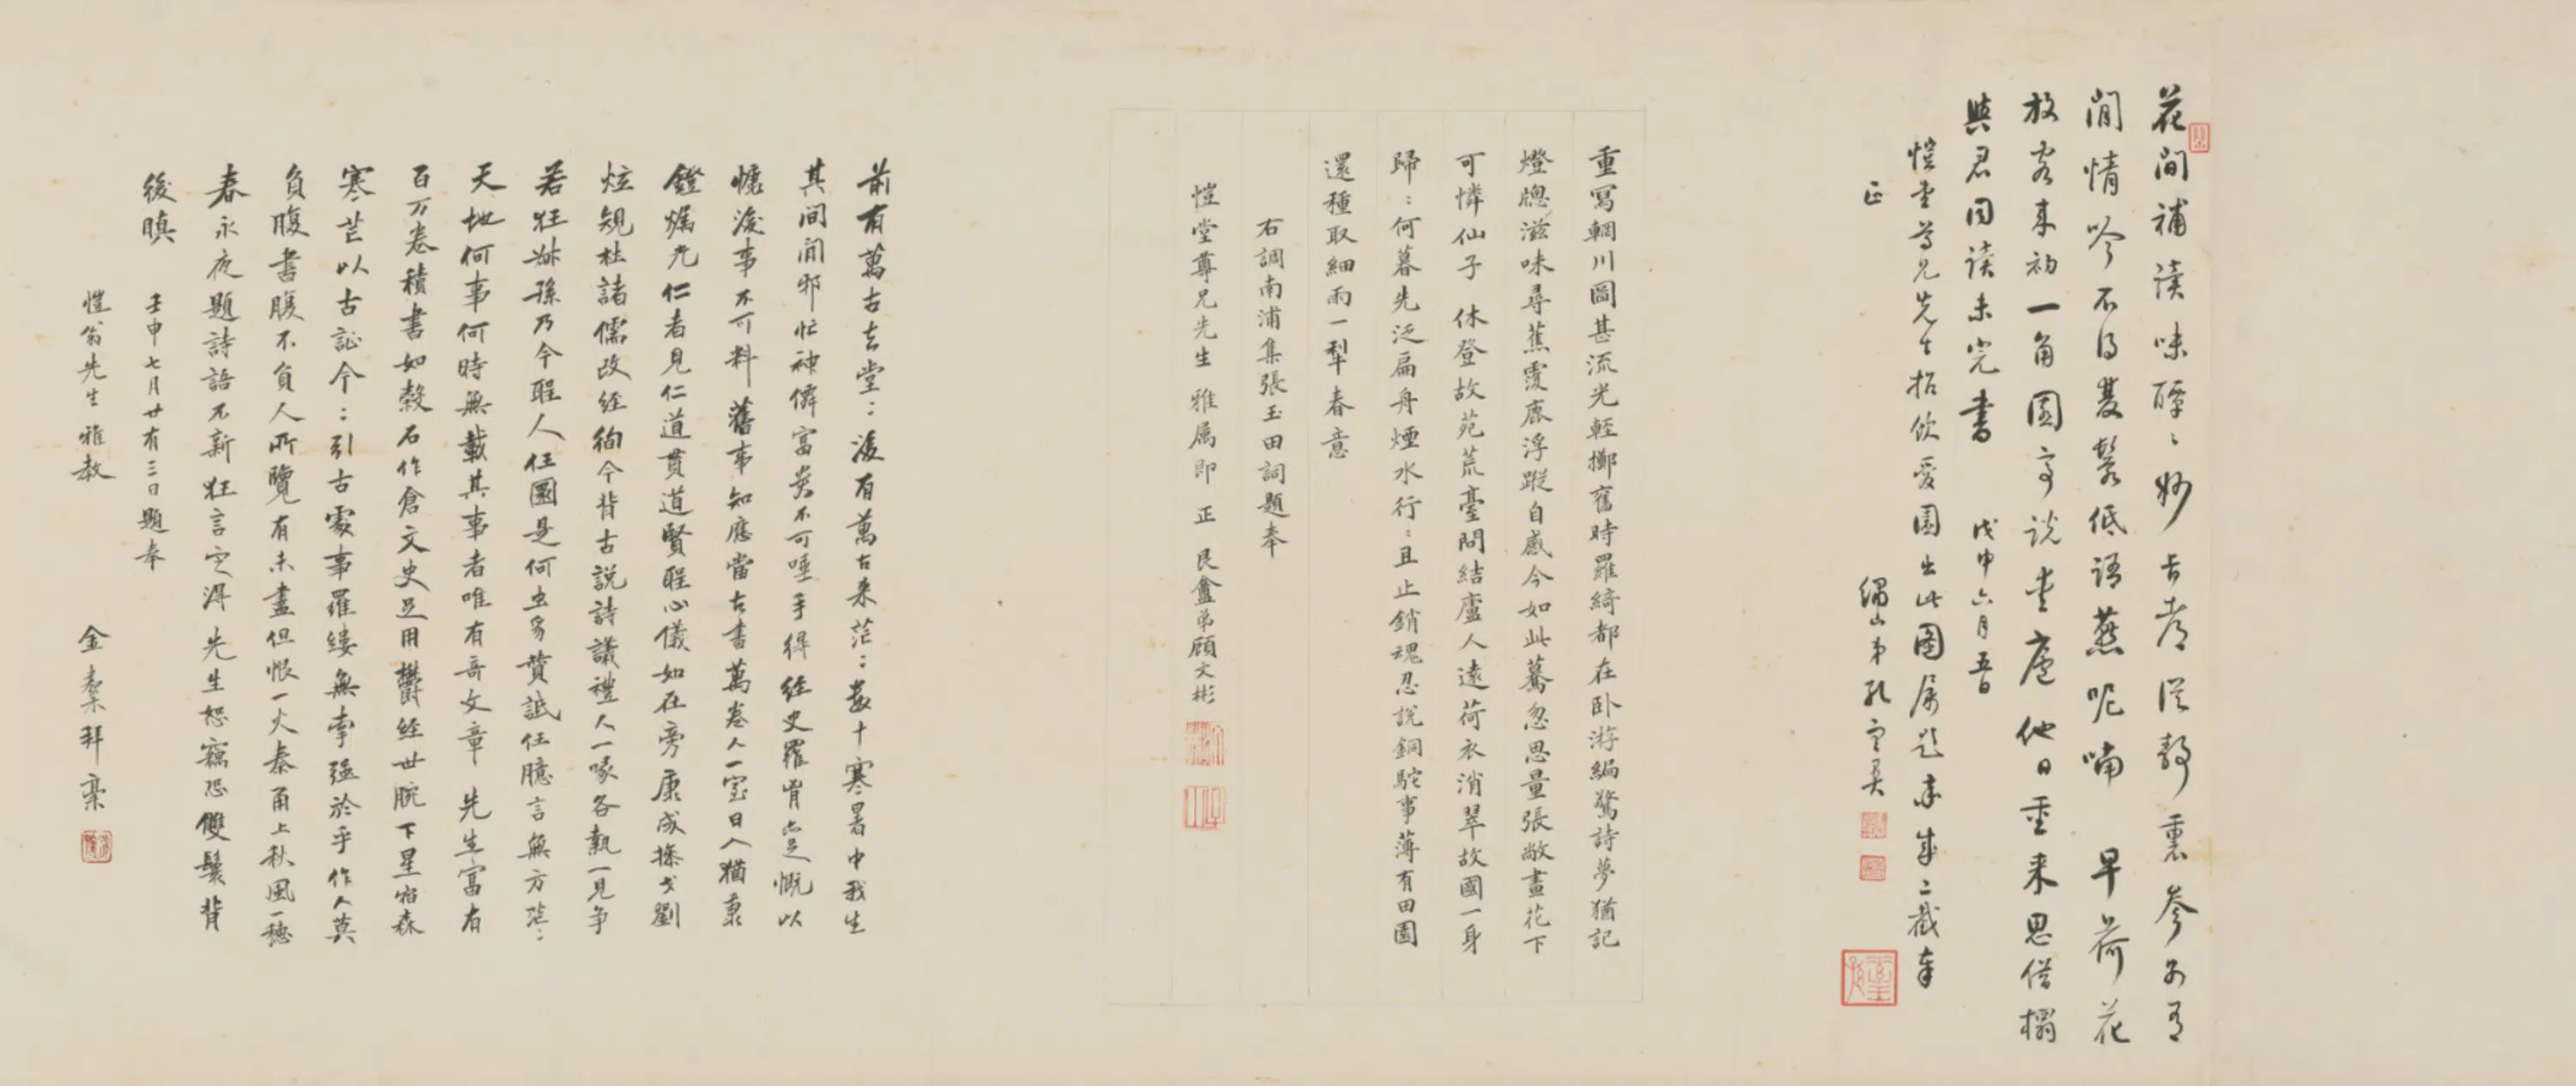 花間補讀味醰〻妙旨考從靜裏參別有
閒情吟不得雙鬟低語燕呢喃 早荷花
放客來初一角園亭說吾廬他日重來思借榻
與君同讀未完書 戊申六月吾
愷堂尊兄先生招飲愛園出此圖屬題率成二截奉
正
繡山弟孔憲彝
重寫輞川圖甚流光輕擲舊時羅綺都在臥游編驚詩夢猶記
燈牕滋味尋蕉覆鹿浮蹤自感今如此驀忽思量張敞畫花下
可憐仙子 休登故苑荒臺問結廬人遠荷衣消翠故國一身
歸〻何暮先泛扁舟煙水行〻且止銷魂忍說銅駝事薄有田園
還種取細雨一犁春意
右調南浦集張玉田詞題奉
愷堂尊兄先生 雅屬即 正 艮盦弟顧文彬
前有萬古去堂〻後有萬古來茫〻數十寒暑中我生
其間閒邪忙神僊富貴不可唾手得經史羅胷亦足慨以
慷後事不可料舊事知應當古書萬卷人一室日入猶秉
鐙燭光仁者見仁道貫道賢聖心儀如在旁康成操戈劉
炫規杜諸儒改經徇今背古說詩議禮人一喙各執一見爭
若狂姝孫乃今聖人任圖是何虫豸贊詆任臆言無方茫〻
天地何事何時無載其事者唯有哥文章 先生富有
百万卷積書如穀石作倉文史足用鬱經世腕下星宿森
寒芒以古證今〻引古處事羅縷無牽强於乎作人莫
負腹書腹不負人所覽有未盡但恨一火秦甬上秋風一穗
春永夜題詩語不新狂言定得 先生恕竊恐雙鬟背
後瞋 壬申七月廿有三日題奉
愷翁先生 雅教 金 拜稾